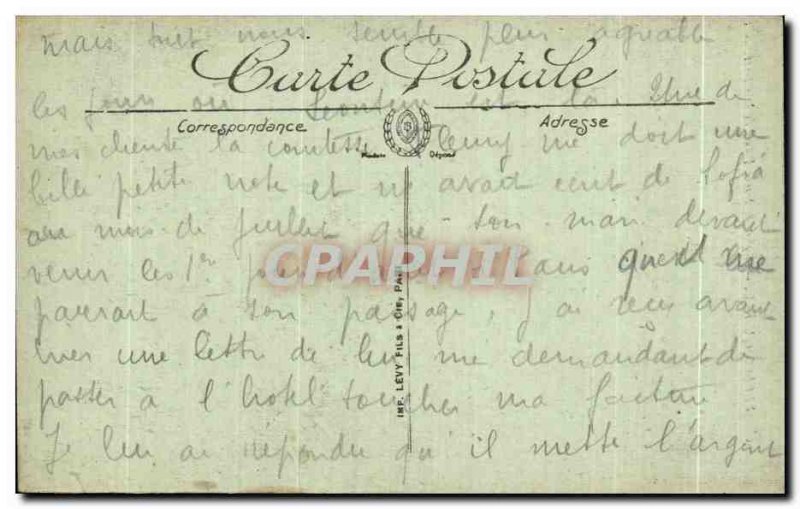 mais tout nous semble plus agréable
Carte Postale
les jours où est là. Une de
Correspondance
Adresse
mes cliente la comtesse me doit une
Modèle Déposé
belle petite note et m'avait écrit de Sofia
au mois de Juillet que son mari devait
venir les 1er jours d'août à Paris qu'il me
CPARPHIL
paierait à son passage, j'ai reçu avant
hier une lettre de lui me demandant de
passer à l'hôtel toucher ma facture
IMP. LEVY FILS & CIE, PARIS
Je lui ai répondu qu'il mette l'argent